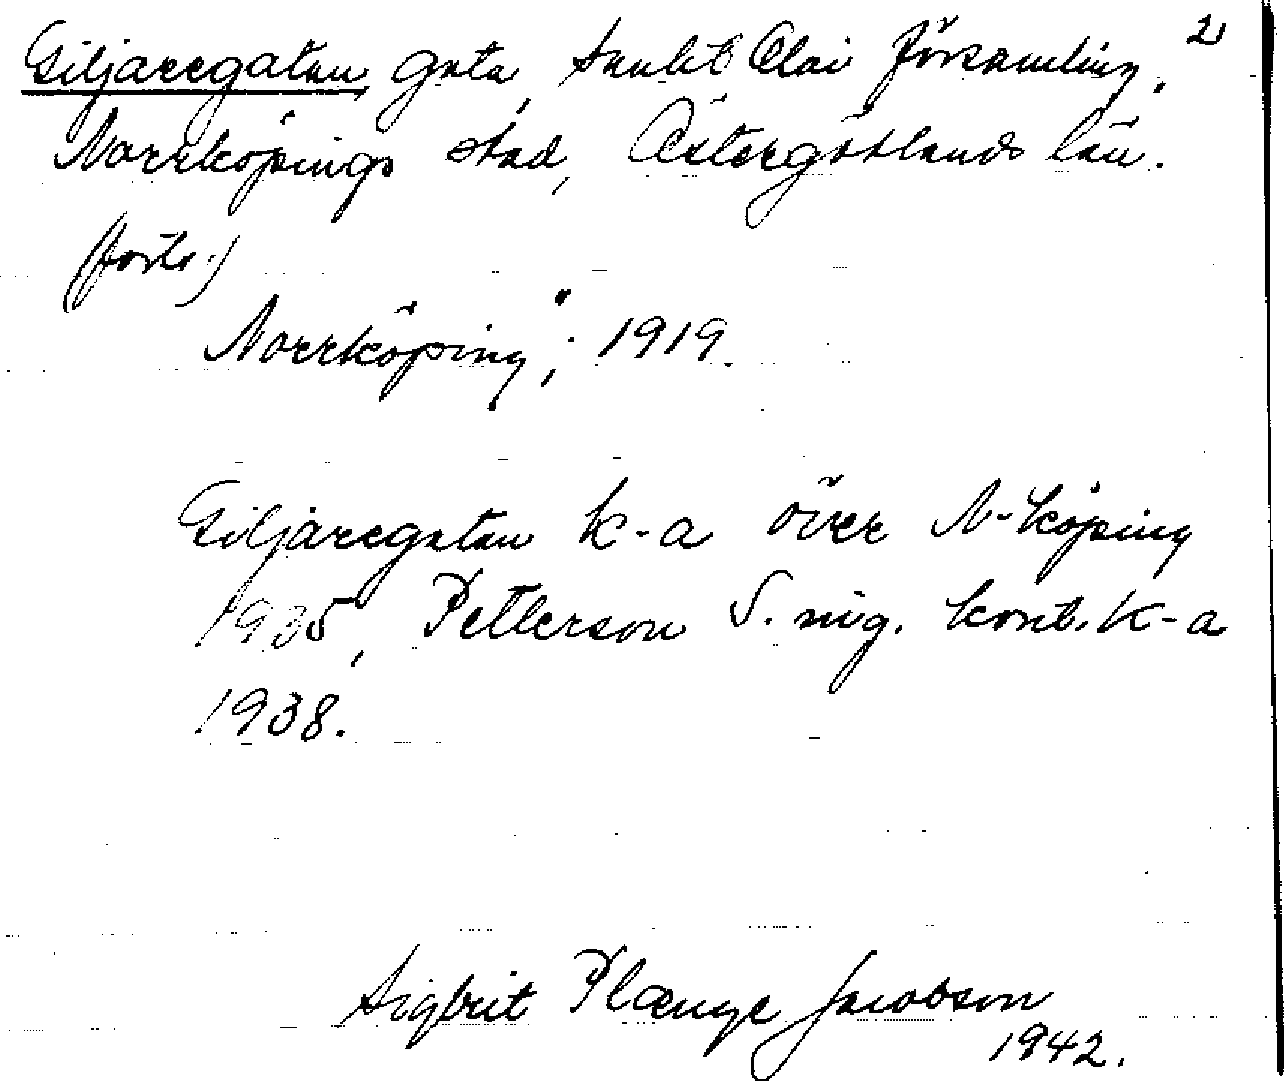 2
Giljaregatan, gata, Sankt Olai församling,
Norrköpings stad, Östergötlands län.
(forts.)
Norrköping", 1919.
Giljaregatan k-a över N-köping
1935, Petterson S. nig. kont. k-a
1938.
Sigbrit Plænge Jacobson
1942.